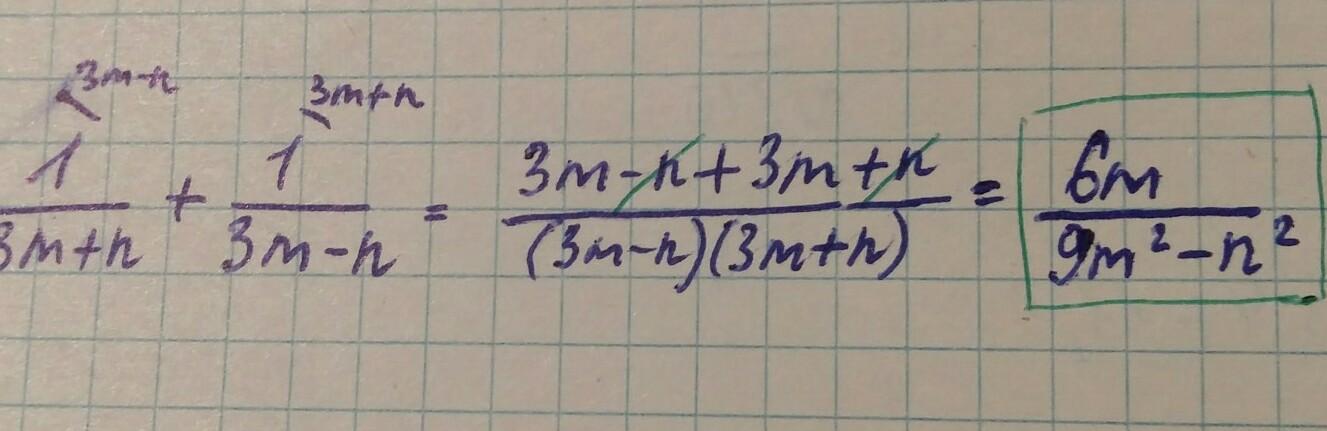 3m-n 3m+n
1/(3m+n) + 1/(3m-n) = (3m-n+3m+n)/((3m-n)(3m+n)) = 6m/(9m²-n²)